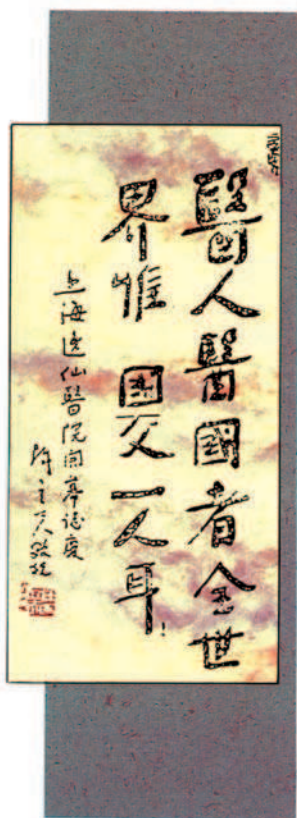 醫人醫國者全世
界惟 國父一人耳！
上海逸仙醫院開幕誌慶
陳立夫敬題